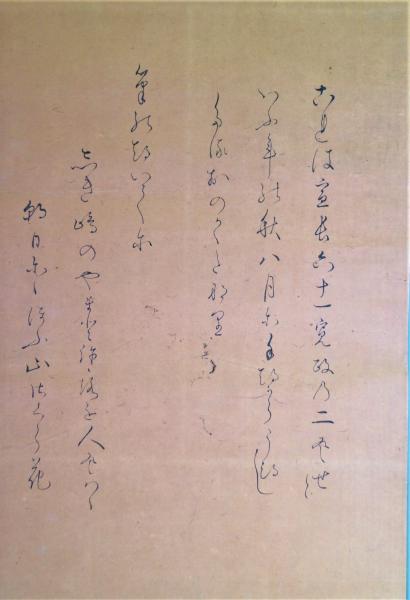 これは宣長六十一寛政の二とせと
いふ年の秋八月に手つからうつし
たるおのかゝたなり
筆のついてに
しき嶋のやまとこゝろを人とはゝ
朝日にゝほふ山さくら花